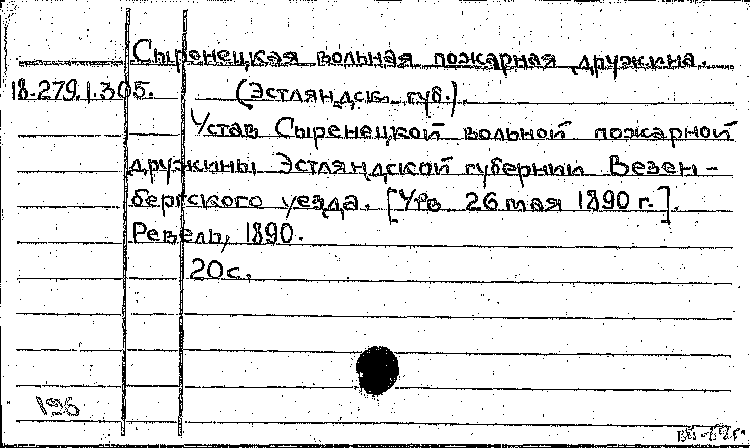 Сыренецкая вольная пожарная дружина.
18.279.1.305.
(Эстляндск. губ.).
Устав Сыренецкой вольной пожарной
дружины Эстляндской губернии Везен-
бергского уезда. [Утв. 26 мая 1890 г.].
Ревель, 1890.
20с.
196